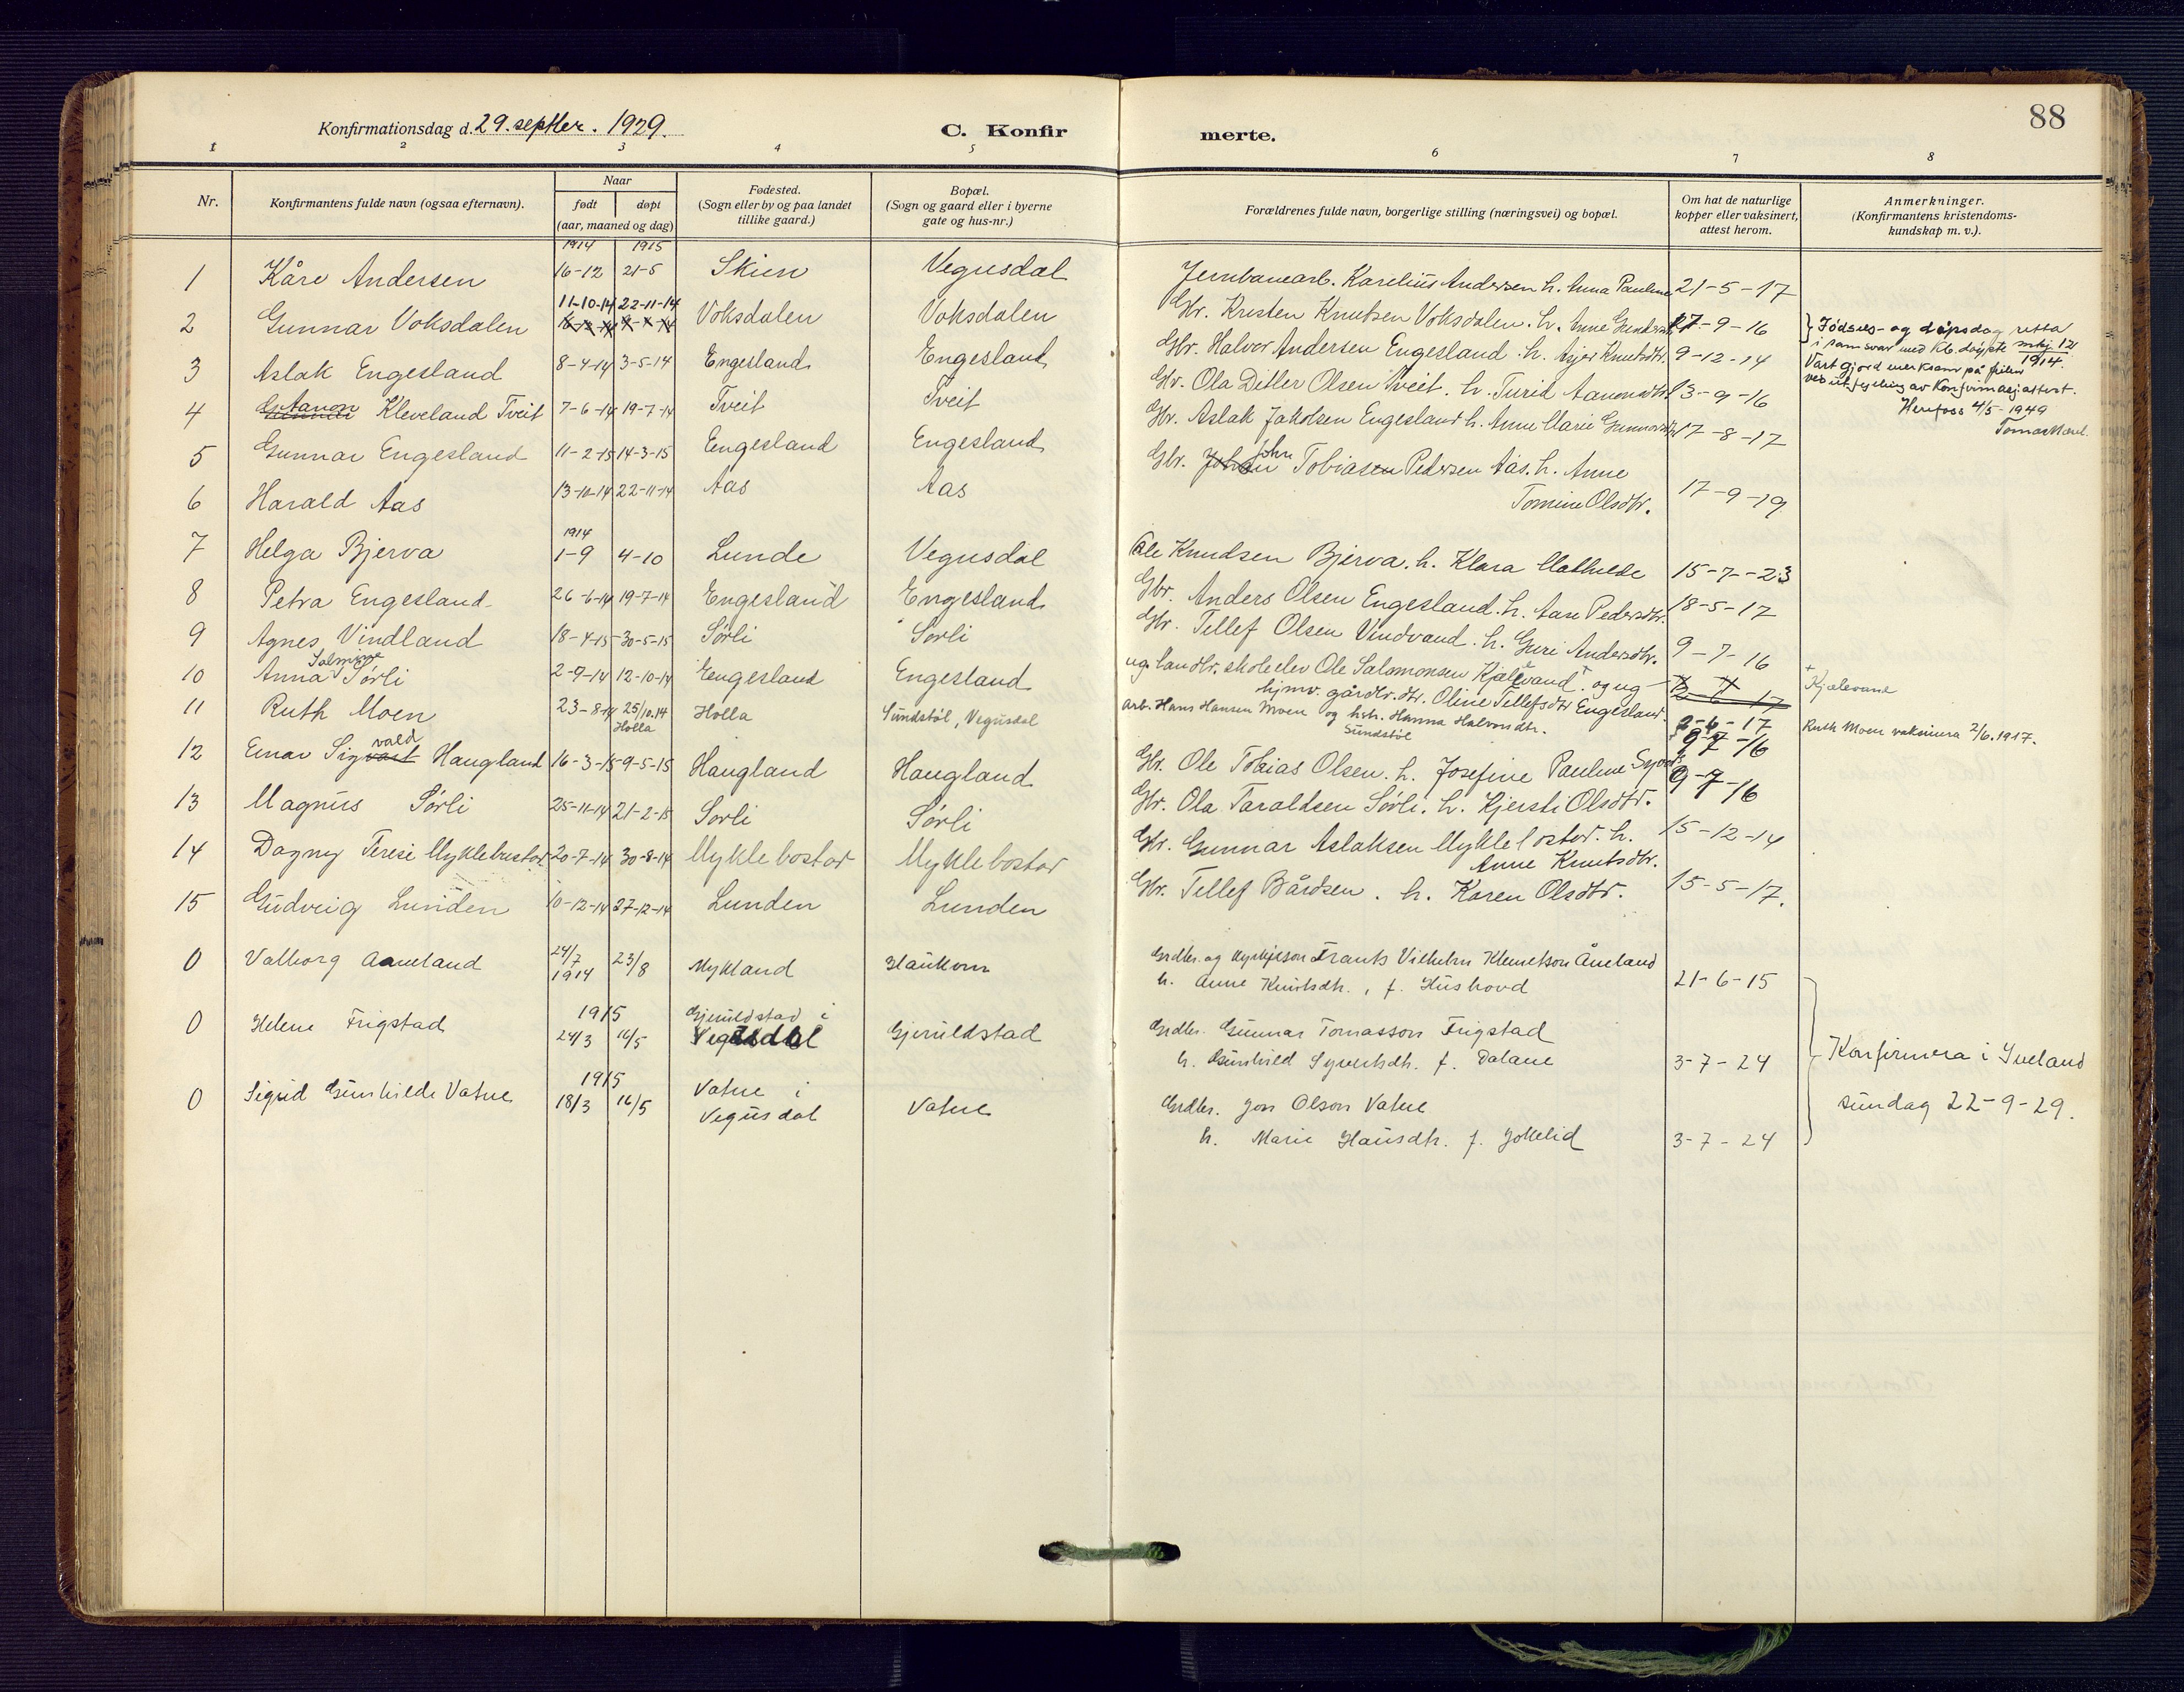 88
Konfirmationsdag d. 29. septbr. 1929.
C. Konfirmerte.
1 2 3 4 5 6 7 8
Nr.
Konfirmantens fulde navn (ogsaa efternavn).
Naar
født døpt
(aar, maaned og dag)
Fødested.
(Sogn eller by og paa landet
tillike gaard.)
Bopæl.
(Sogn og gaard eller i byerne
gate og hus-nr.)
Forældrenes fulde navn, borgerlige stilling (næringsvei) og bopæl.
Om hat de naturlige
kopper eller vaksinert,
attest herom.
Anmerkninger.
(Konfirmantens kristendoms-
kundskap m. v.).
1914 1915
1 Kåre Andersen 16-12 21-5 Skien Vegusdal Jernbanearb. Karelius Andersen h. Anna Pauline 21-5-17
11-10-14 22-11-14
2 Gunnar Voksdalen Voksdalen Voksdalen Gbr. Kristen Knutsen Voksdalen. h. Anne 17-9-16
Fødsels- og dåpsdag retta
i samsvar med Kb. døypte mkj. 12/
1914.
Vart gjord merksam på feilen
ved utferding av Konfirmasj. attest.
Herefoss 4/5-1949
3 Aslak Engesland 8-4-14 3-5-14 Engesland Engesland Gbr. Halvor Andersen Engesland. h. Asjer Knutsdtr. 9-12-14
4 Aanon Kleveland Tveit 7-6-14 19-7-14 Tveit Tveit Gbr. Ola Ditler Olsen Tveit. h. Turid Aanonsdtr. 13-9-16
5 Gunnar Engesland 11-2-15 14-3-15 Engesland Engesland Gbr. Aslak Jakobsen Engesland h. Anne Marie Gunnarsdtr. 17-8-17
6 Harald Aas 13-10-14 22-11-14 Aas Aas Gbr. Johan John Tobiasen Pedersen Aas. h. Anne
Tomine Olsdtr. 17-9-19
1914
7 Helga Bjerva 1-9 4-10 Lunde Vegusdal Ole Knudsen Bjerva. h. Klara Mathilde 15-7-23
8 Petra Engesland 26-6-14 19-7-14 Engesland Engesland Gbr. Anders Olsen Engesland. h. Aase Pedersdtr. 18-5-17
9 Agnes Vindland 18-4-15 30-5-15 Sørli Sørli Gbr. Tellef Olsen Vindvand. h. Guri Andersdtr. 9-7-16
Salmine
10 Anna Sørli 2-9-14 12-10-14 Eengesland Engesland ug. landbr. skoleelev Ole Salomonsen Kjælevand + og ug
hjmv. gårdbr. dtr. Oline Tellefsdtr Engesland.
+ Kjælevand
11 Ruth Moen 23-8-14 25/10.14 Holla Holla Sundstøl, Vegusdal arb. Hans Hansen Moen og h. Hanna Halvorsdtr.
Sundstøl 2-6-17 Ruth Moen vaksinera 2/6.1917.
12 Einar Sigvald Haugland 16-3-15 9-5-15 Haugland Haugland Gbr. Ole Tobias Olsen. h. Josefine Pauline 9-7-16
13 Magnus Sørli 25-11-14 21-2-15 Sørli Sørli Gbr. Ola Taraldsen Sørli. h. Kjersti Olsdtr. 9-7-16
14 Dagny Terese Myklebustad 20-7-14 30-8-14 Myklebostad Myklebostad Gbr. Gunnar Aslaksen Myklebostad. h.
Anne Knutsdtr. 15-12-14
15 Gudveig Lunden 10-12-14 27-12-14 Lunden Lunden Gbr. Tellef Bårdsen. h. Karen Olsdtr. 15-5-17.
0 Valborg Aaneland 24/7 1914 23/8 Mykland Haukom Grdbr. og kyrkjeson Frants Vilhelm Klemetson Åneland
h. Anne Knutsdtr., f. Hushovd 21-6-15
0 Helene Frigstad 1915 24/3 16/5 Gjeruldstad i
Vegusdal Gjeruldstad Grdbr. Gunnar Tomasson Frigstad
h. Gunhild Syvertsdtr. f. Dalane 3-7-24
Konfirmera i Iveland
sundag 22-9-29.
0 Sigrid Gunhilde Vatne 1915 18/3 16/5 Vatne i
Vegusdal Vatne Grdbr. Jon Olson Vatne
h. Marie Hansdtr. f. Jokelid 3-7-24